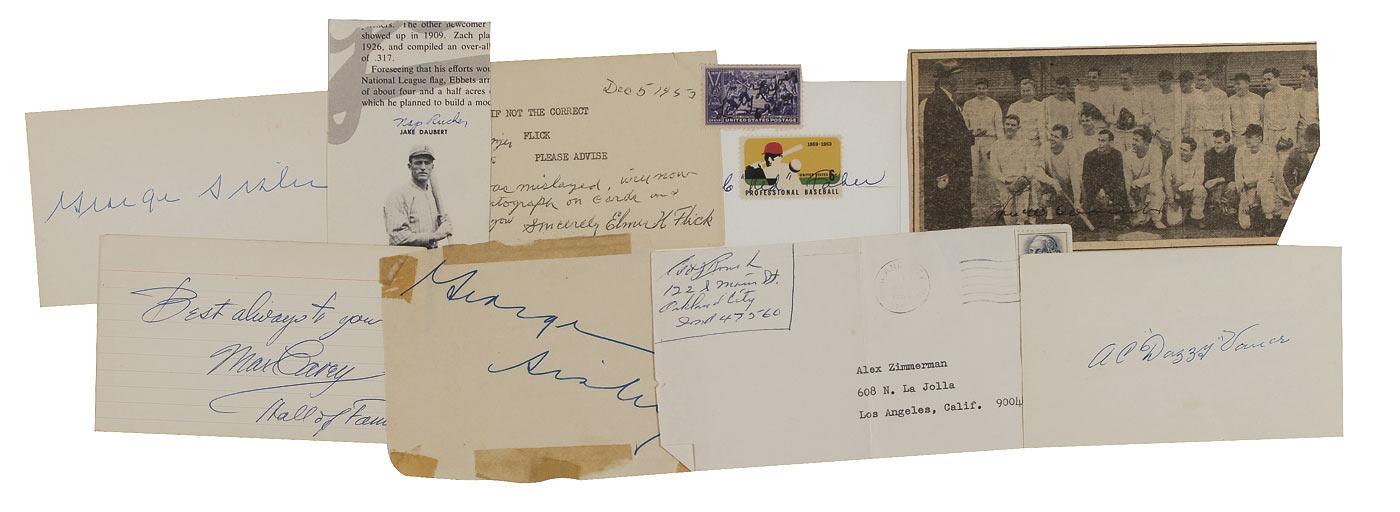 George Sisler
The other newcomer
showed up in 1909. Zach pla
1926, and compiled an over-all
of .317.
Foreseeing that his efforts wou
National League flag, Ebbets arr
of about four and a half acres
which he planned to build a mod
Nap Rucker
JAKE DAUBERT
Dec 5 1953
IF NOT THE CORRECT
FLICK
PLEASE ADVISE
was mislayed, will now
autograph on cards and
you
Sincerely Elmer H Flick
UNITED STATES POSTAGE
1869-1969
UNITED STATES 6¢
PROFESSIONAL BASEBALL
"Red" Faber
Best always to you
Max Carey
Hall of Fam
George
Sisler
Edd J Roush
122 S Main St.
Oakland City
Ind 47560
Alex Zimmerman
608 N. La Jolla
Los Angeles, Calif. 9004
AC "Dazzy" Vance